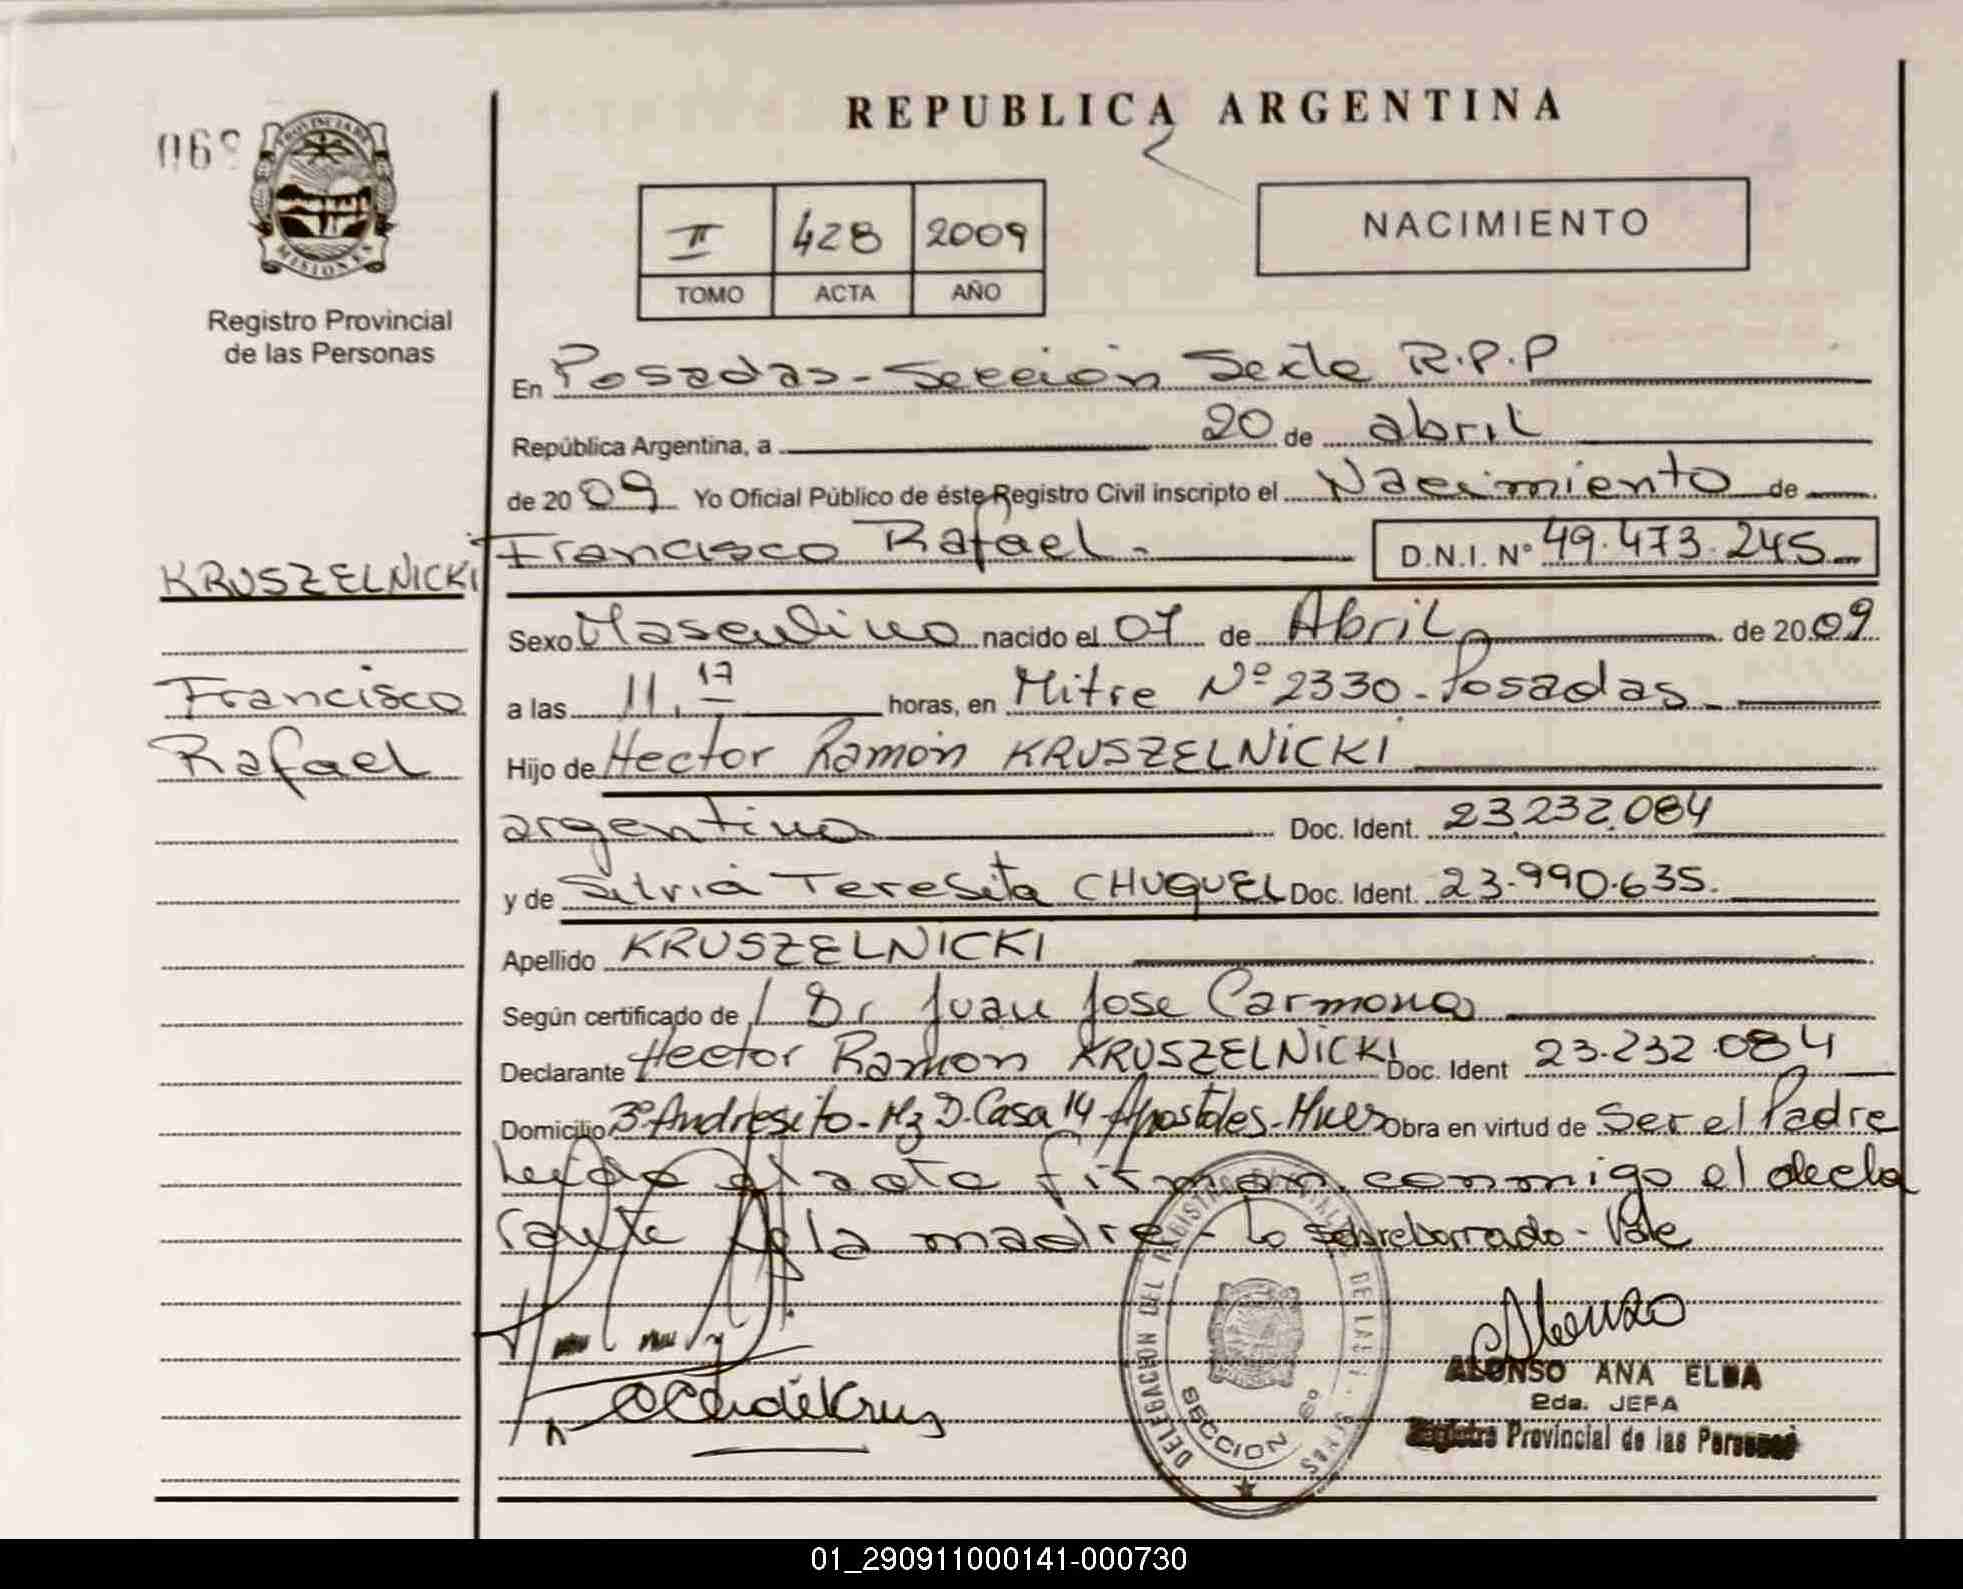 REPUBLICA ARGENTINA
069
PROVINCIA DE
MISIONES
Registro Provincial
de las Personas
II 428 2009
TOMO ACTA AÑO
NACIMIENTO
En Posadas - Sección Sexta R.P.P
República Argentina, a 20 de abril
de 2009 Yo Oficial Público de éste Registro Civil inscripto el Nacimiento de
Francisco Rafael.- D.N.I. N° 49.473.245
KRUSZELNICKI
Francisco
Rafael
Sexo Masculino nacido el 07 de Abril de 2009
a las 11,17 horas, en Mitre Nº 2330 - Posadas
Hijo de Hector Ramón KRUSZELNICKI
argentino Doc. Ident. 23.232.084
y de Silvia Teresita CHUQUEL Doc. Ident. 23.990.635.
Apellido KRUSZELNICKI
Según certificado de Dr Juan Jose Carmona
Declarante Hector Ramon KRUSZELNICKI Doc. Ident 23.232.084
Domicilio Bº Andresito - Mz D. Casa 14 Apostoles - Mnes Obra en virtud de Ser el Padre
Leída el acta firman conmigo el decla
rante y la madre - Lo sobreborrado - Vale
DELEGACION DEL REGISTRO PROVINCIAL DE LAS PERSONAS
SECCION 6º
Alonso
ALONSO ANA ELBA
2da. JEFA
Registro Provincial de las Personas
01_290911000141-000730